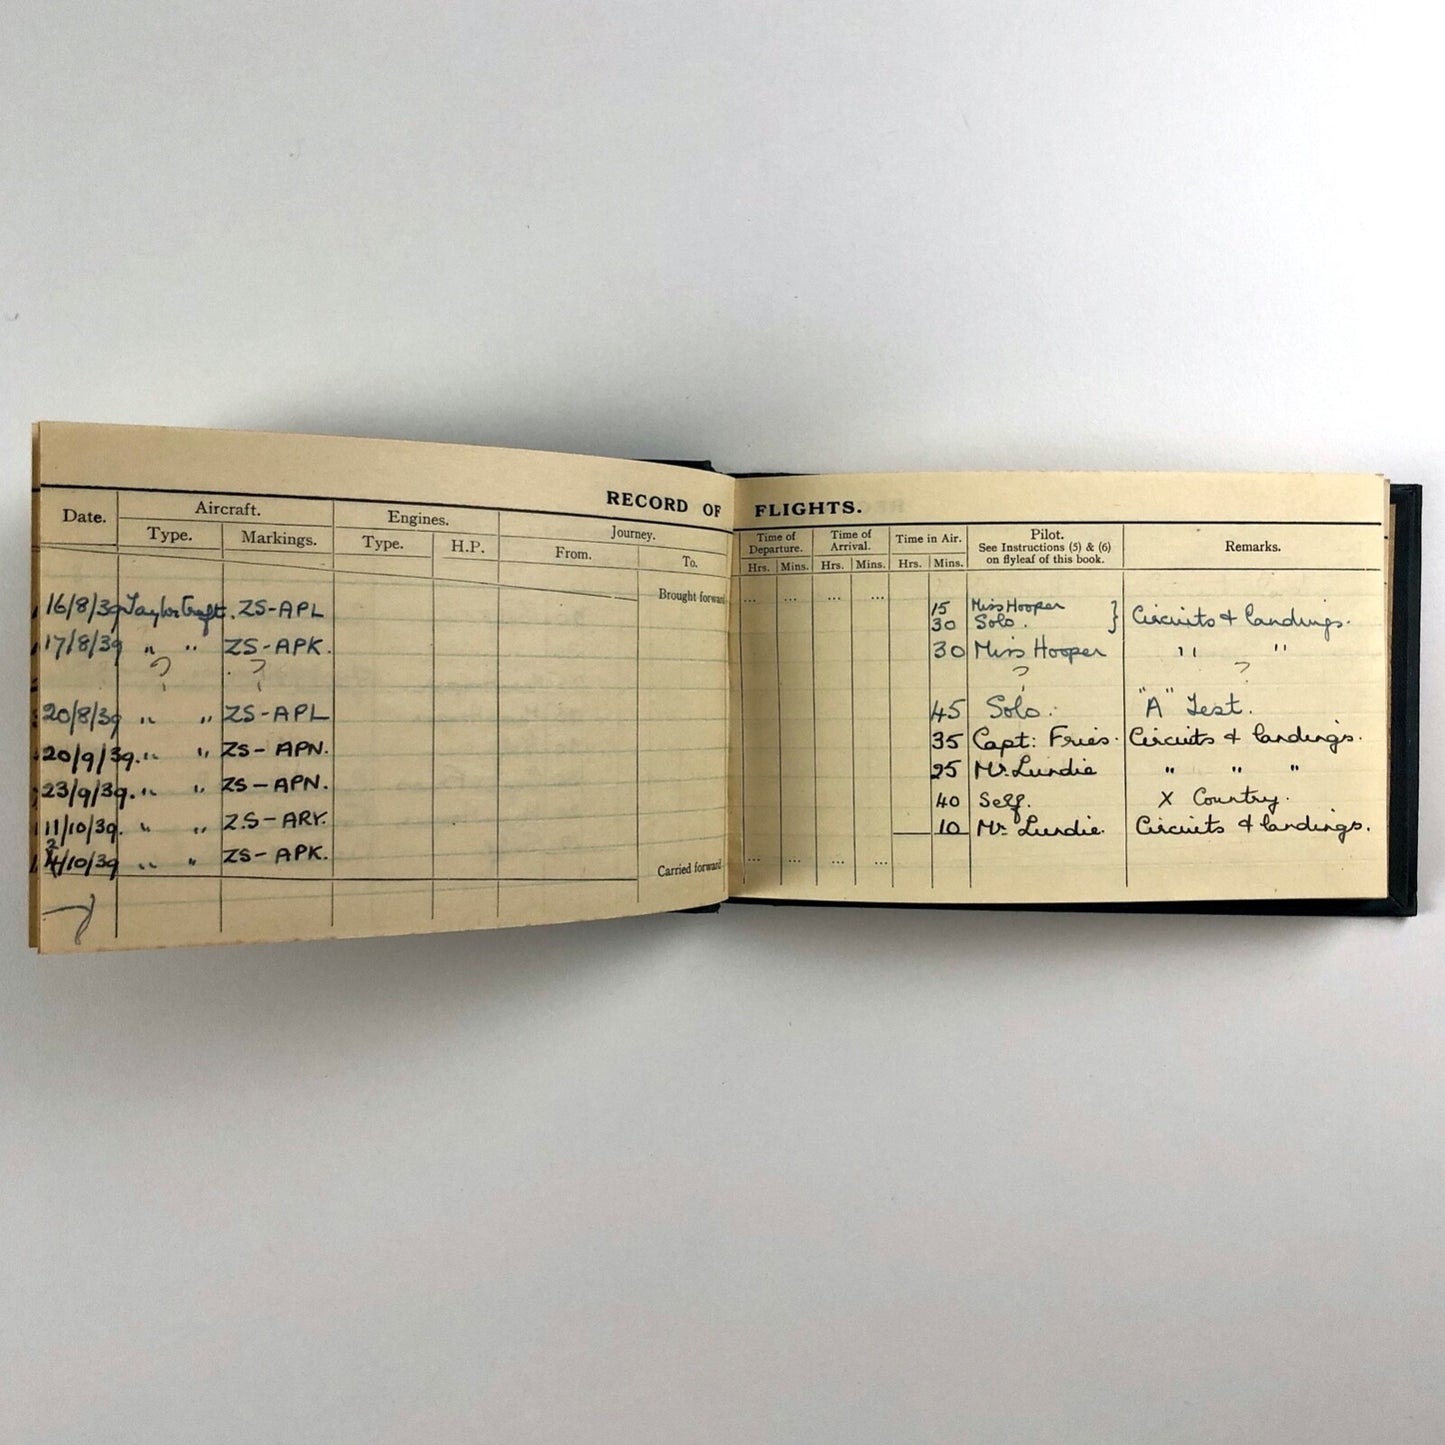 RECORD OF FLIGHTS.
Date. Aircraft. Engines. Journey. Time of Departure. Time of Arrival. Time in Air. Pilot. See Instructions (5) & (6) on flyleaf of this book. Remarks.
Type. Markings. Type. H.P. From. To. Hrs. Mins. Hrs. Mins. Hrs. Mins.
Brought forward ... ... ... ...
16/8/39 Taylorcraft. ZS-APL 15 Miss Hooper } Circuits & landings.
30 Solo.
17/8/39 " " ZS-APK. 30 Miss Hooper " "
? ? ? ?
20/8/39 " " ZS-APL 45 Solo. "A" Test.
20/9/39. " " ZS-APN. 35 Capt: Fries. Circuits & landings.
23/9/39. " " ZS-APN. 25 Mr. Lundie " " "
11/10/39. " " ZS-ARY. 40 Self. X Country.
/10/39 " " ZS-APK. 10 Mr. Lundie. Circuits & landings.
Carried forward ... ... ... ...